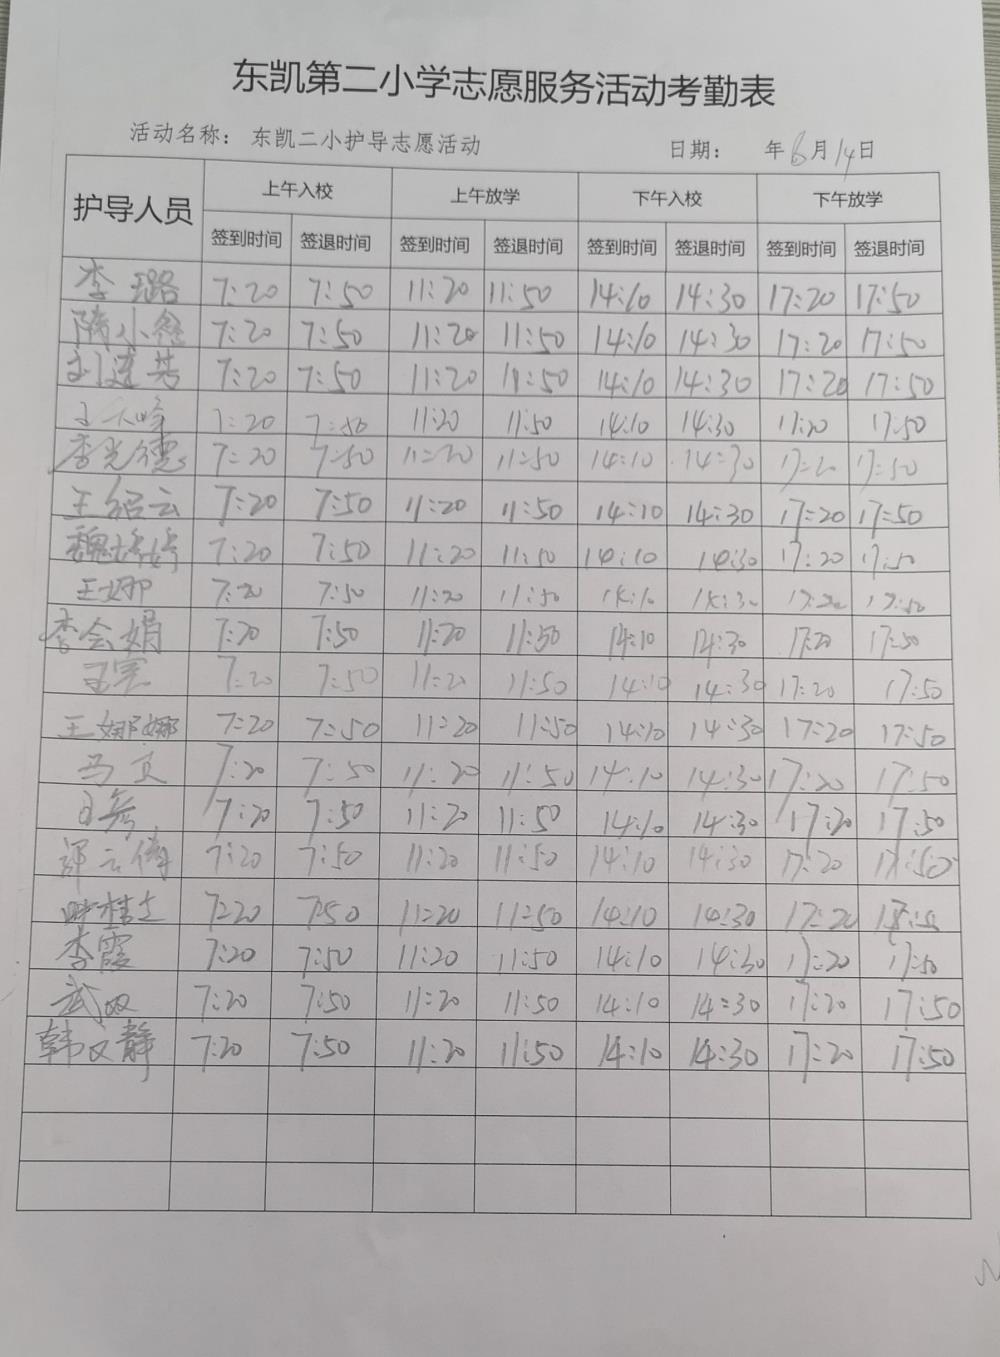 东凯第二小学志愿服务活动考勤表
活动名称： 东凯二小护导志愿活动 日期： 年6月14日
护导人员 上午入校 上午放学 下午入校 下午放学
签到时间 签退时间 签到时间 签退时间 签到时间 签退时间 签到时间 签退时间
李璐 7:20 7:50 11:20 11:50 14:10 14:30 17:20 17:50
隋小鑫 7:20 7:50 11:20 11:50 14:10 14:30 17:20 17:50
刘建芸 7:20 7:50 11:20 11:50 14:10 14:30 17:20 17:50
7:20 7:50 11:20 11:50 14:10 14:30 17:20 17:50
李光德 7:20 7:50 11:20 11:50 14:10 14:30 17:20 17:50
王绍云 7:20 7:50 11:20 11:50 14:10 14:30 17:20 17:50
魏婷婷 7:20 7:50 11:20 11:50 14:10 14:30 17:20 17:50
王娜 7:20 7:50 11:20 11:50 14:10 14:30 17:20 17:50
李会娟 7:20 7:50 11:20 11:50 14:10 14:30 17:20 17:50
王宪 7:20 7:50 11:20 11:50 14:10 14:30 17:20 17:50
王娜娜 7:20 7:50 11:20 11:50 14:10 14:30 17:20 17:50
马文 7:20 7:50 11:20 11:50 14:10 14:30 17:20 17:50
7:20 7:50 11:20 11:50 14:10 14:30 17:20 17:50
7:20 7:50 11:20 11:50 14:10 14:30 17:20 17:50
7:20 7:50 11:20 11:50 14:10 14:30 17:20 17:50
李霞 7:20 7:50 11:20 11:50 14:10 14:30 17:20 17:50
武双 7:20 7:50 11:20 11:50 14:10 14:30 17:20 17:50
韩文静 7:20 7:50 11:20 11:50 14:10 14:30 17:20 17:50